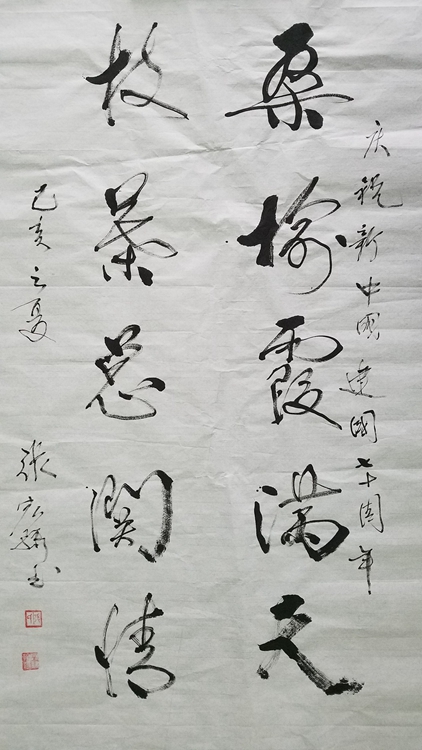 庆祝新中國建國七十周年
桑榆霞满天
枝葉总関情
己亥之夏
张宏书